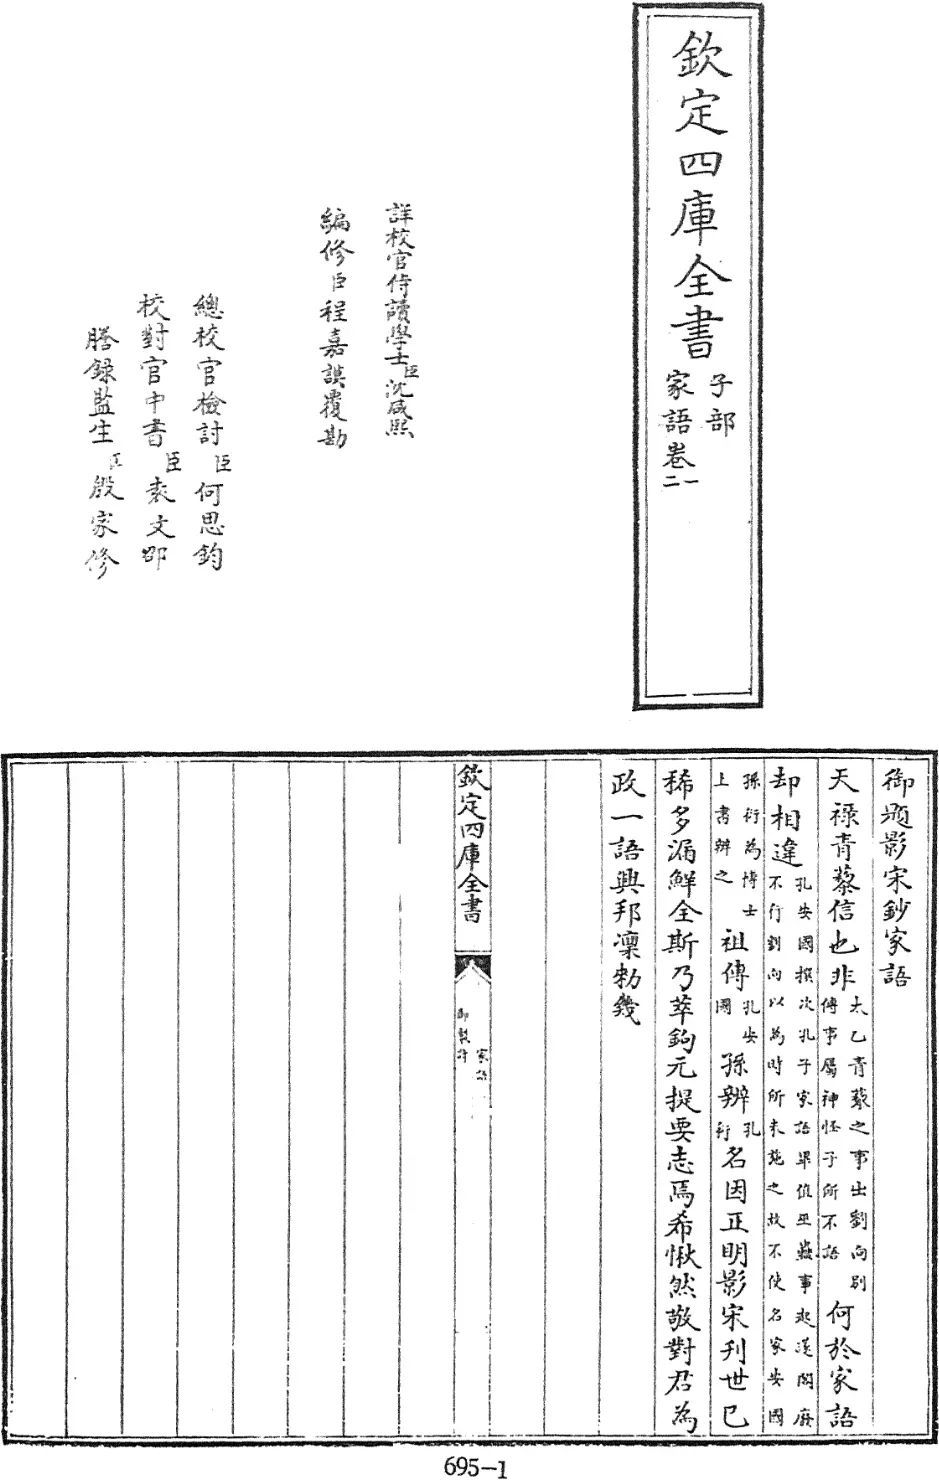 欽定四庫全書
子部
家語卷一二
詳校官侍讀學士臣沈咸熙
編修臣程嘉謨覆勘
總校官檢討臣何思鈞
校對官中書臣袁文邵
謄錄監生臣殷家修
御題影宋鈔家語
天祿青藜信也非太乙青藜之事出劉向別傳事屬神怪子所不語何於家語
却相違孔安國撰次孔子家語畢值巫蠱事起遂閣廢不行劉向以為時所未施之故不使名家安國
孫衍為博士上書辨之祖傳孔安國孫辨孔衍名因正明影宋刊世已
稀多漏鮮全斯乃萃鉤元提要志焉希愀然敬對君為
政一語興邦凜勑幾
欽定四庫全書
家語
御製詩
695-1